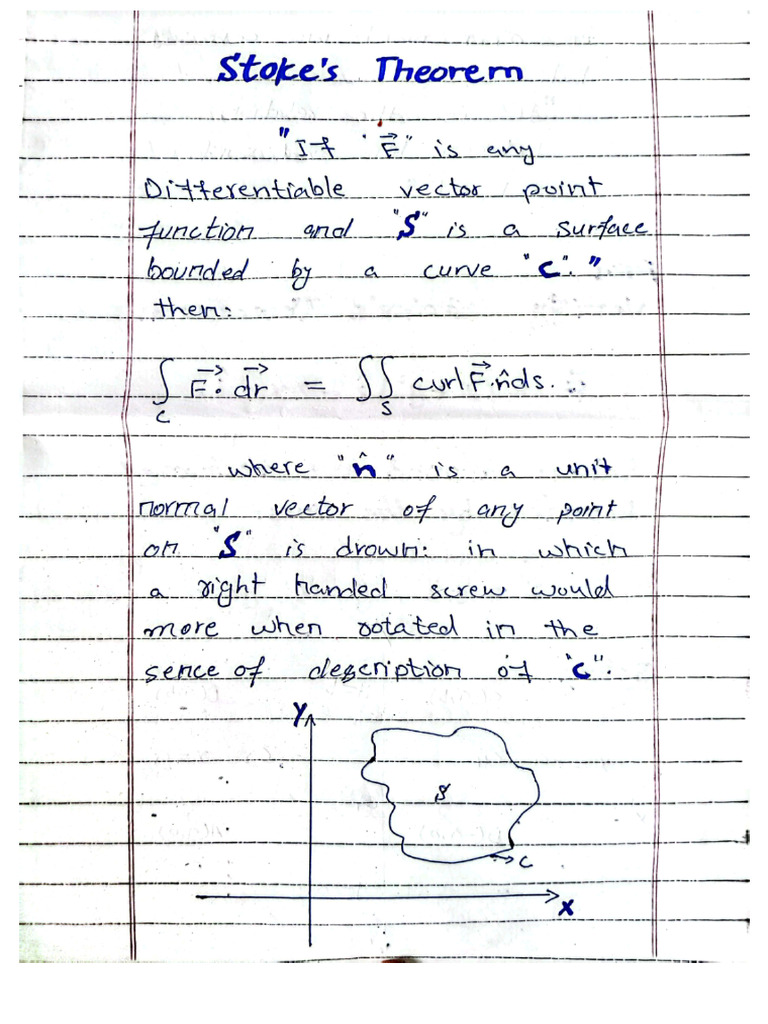 Stoke's Theorem
"If "F⃗" is any
Differentiable vector point
function and "S" is a surface
bounded by a curve "C"."
then:
∫_C F⃗. dr⃗ = ∬_S curl F⃗.n̂ds.
where "n̂" is a unit
normal vector of any point
on "S" is drown: in which
a right handed screw would
more when rotated in the
sence of description of "C".
Y
S
C
X